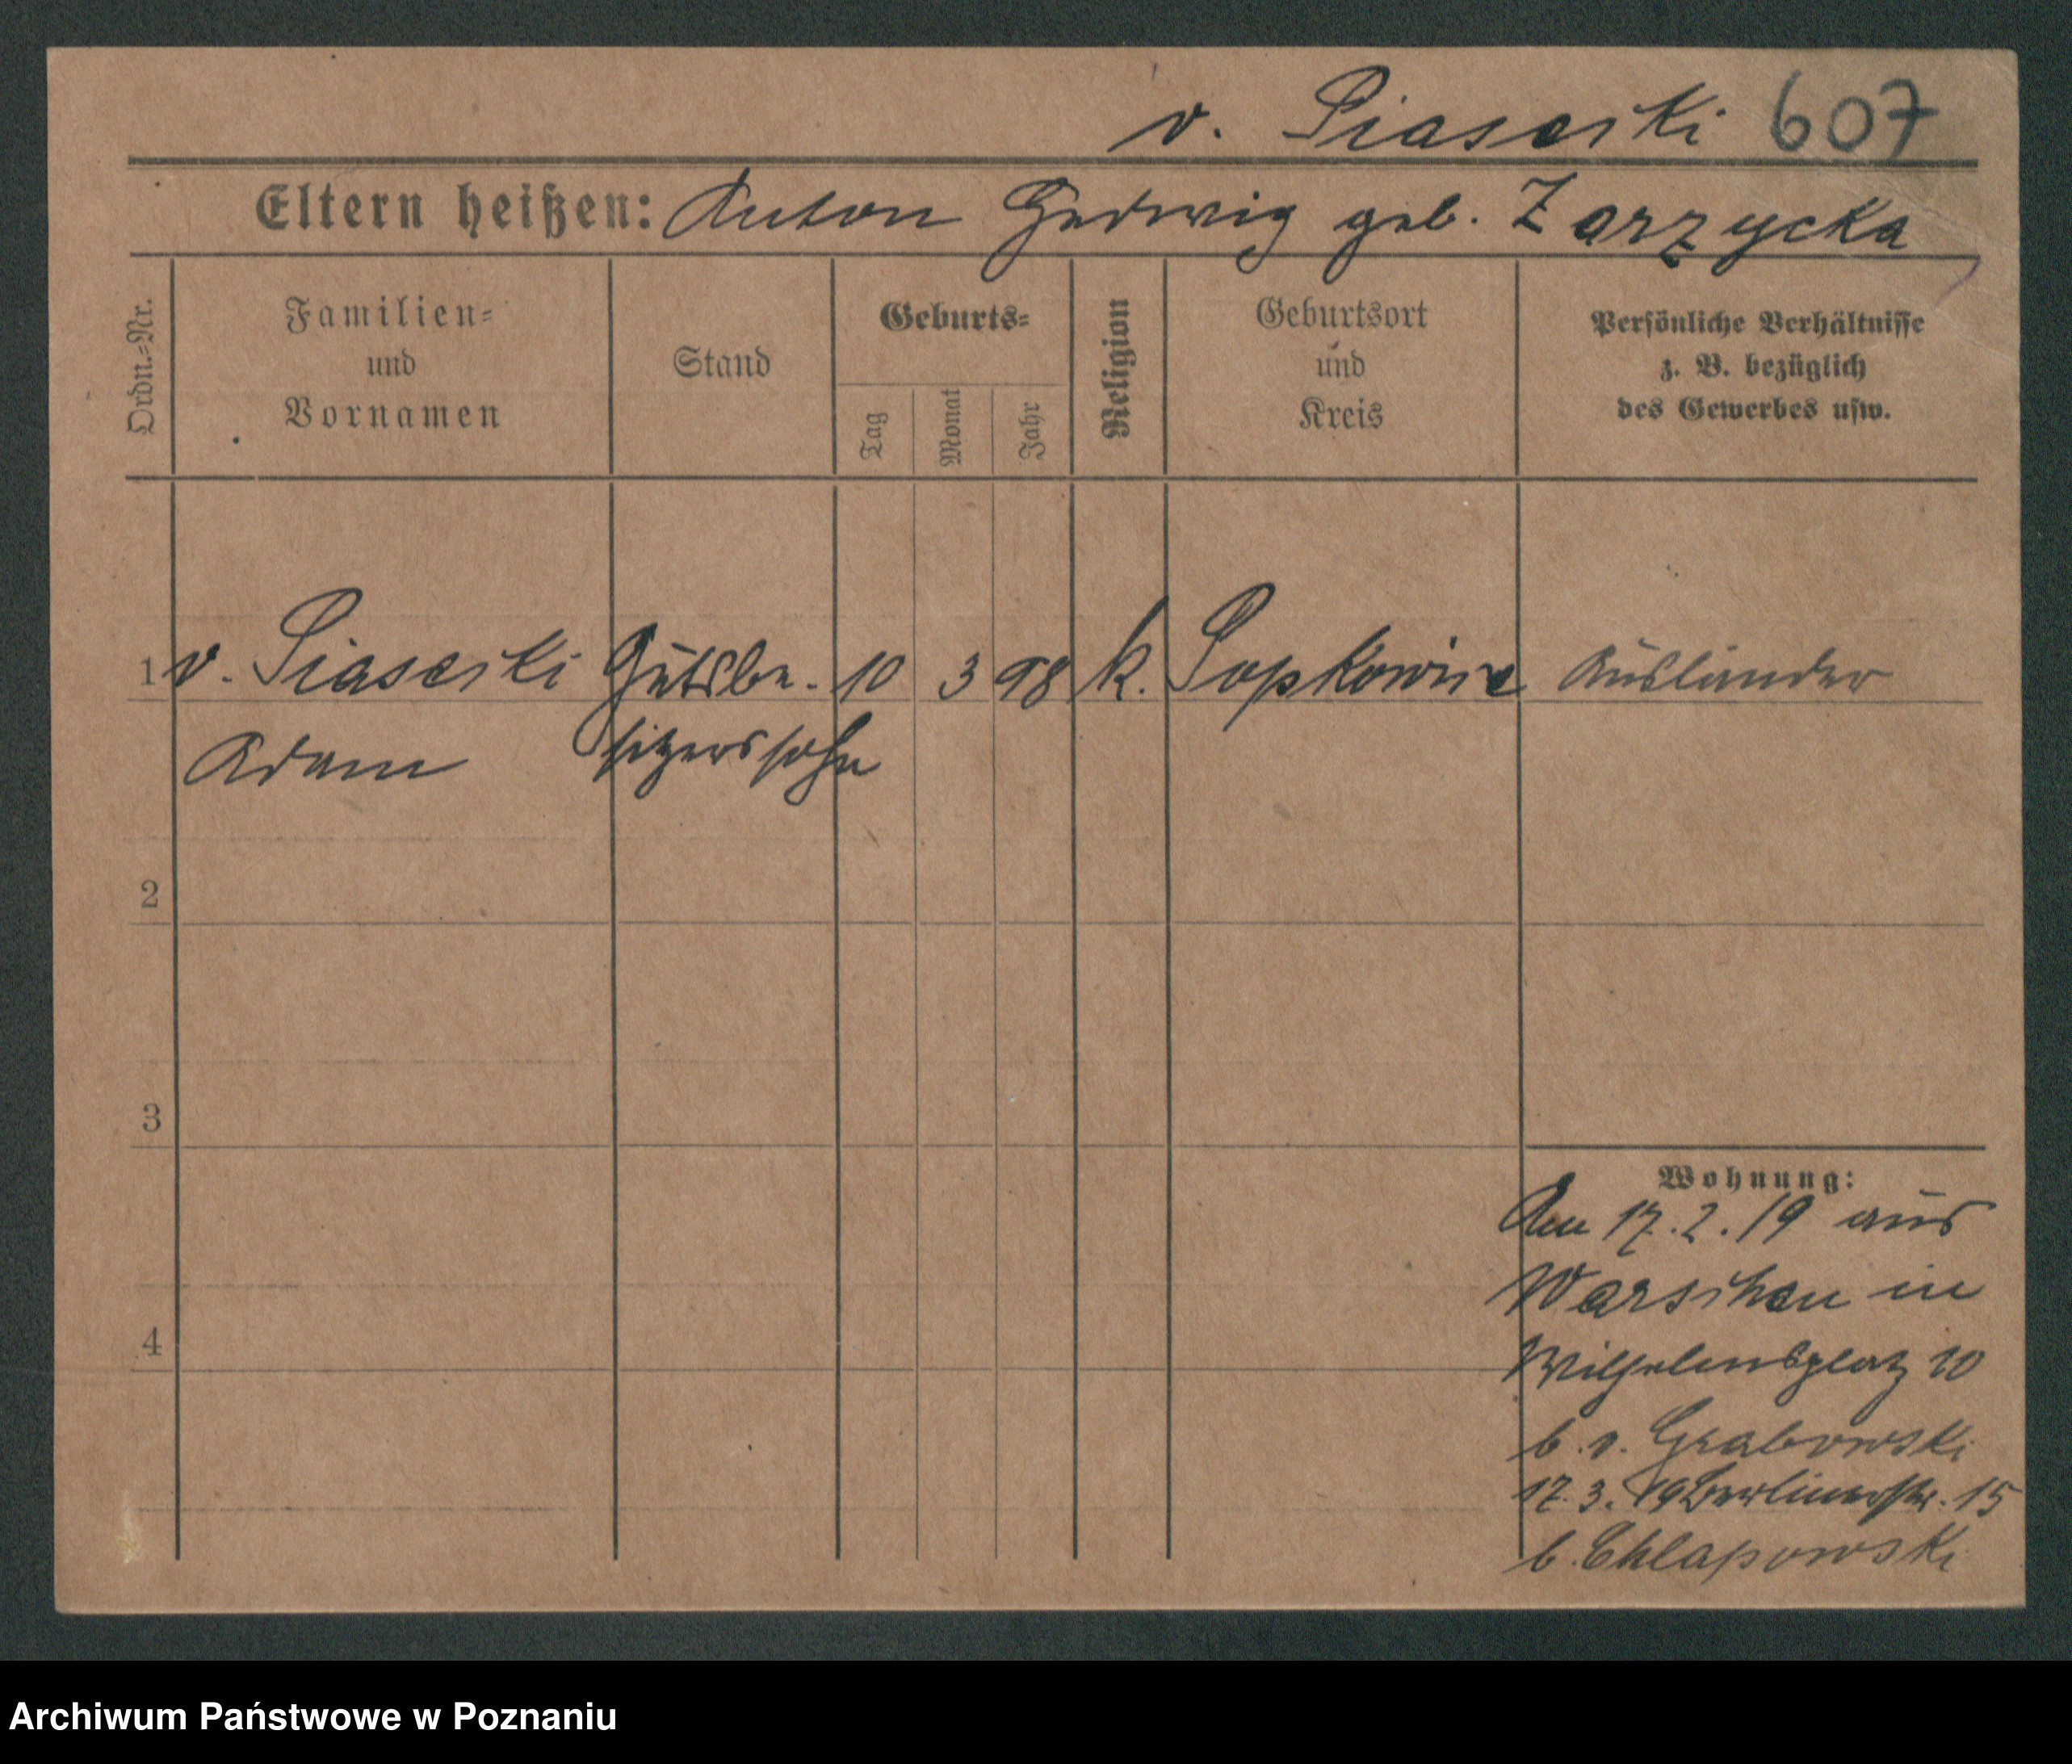 v. Piasecki 607
Eltern heißen: Anton Hedwig geb. Zarzycka
Ordn.=Nr.
Familien=
und
Vornamen
Stand
Geburts=
Tag
Monat
Jahr
Religion
Geburtsort
und
Kreis
Persönliche Verhältnisse
z. B. bezüglich
des Gewerbes usw.
1 v. Piasecki Gutsbe. 10 3 98 k. Ausländer
Adam sitzerssohn
2
3
4
Wohnung:
Am 17.2.19 aus
Warschau in
Wilhelmsplatz 10
b. v. Grabowski
17.3.19 Berlinerstr. 15
b. Chlapowski
Archiwum Państwowe w Poznaniu